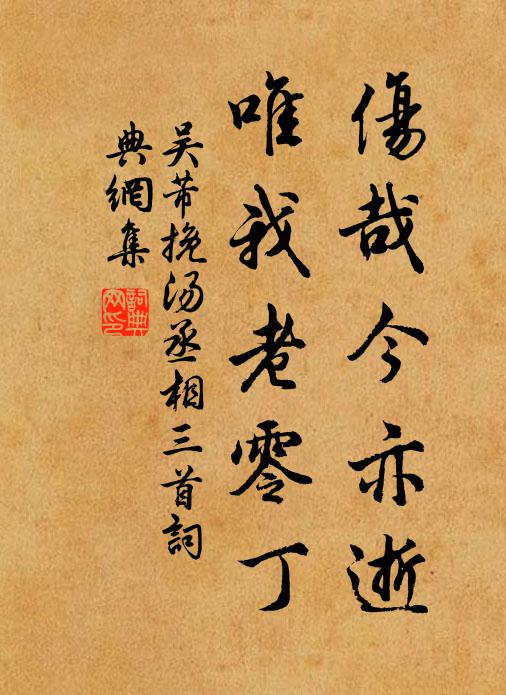 傷哉今亦逝
唯我老零丁
吴芾挽汤丞相三首詞
典網集
詞典
网印